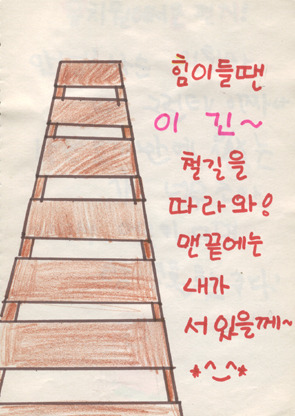 힘이들땐
이 긴~
철길을
따라와!
맨끝에는
내가
서있을께~
*^_^*